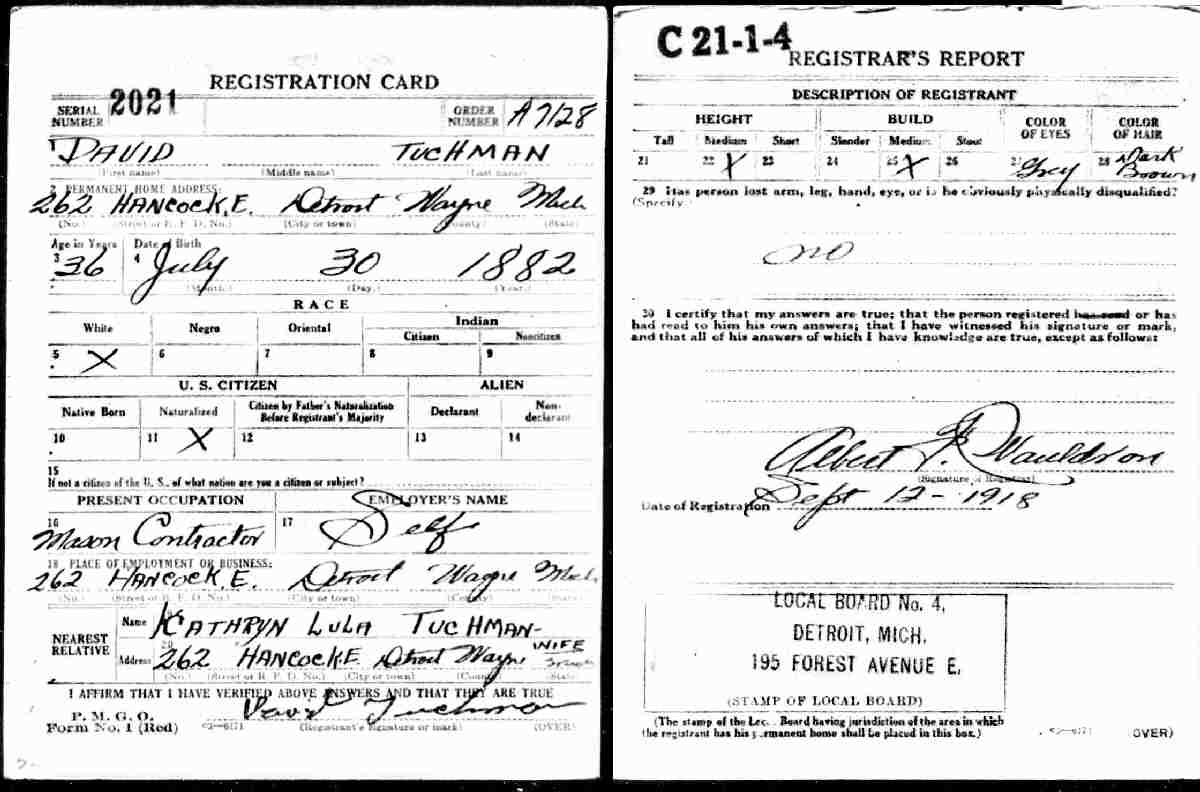 REGISTRATION CARD
SERIAL NUMBER 2021 ORDER NUMBER A7128
1 DAVID TUCHMAN
(First name) (Middle name) (Last name)
2 PERMANENT HOME ADDRESS:
262 HANCOCK.E. Detroit Wayne Mich
(No.) (Street or R. F. D. No.) (City or town) (County) (State)
Age in Years Date of Birth
3 36 4 July 30 1882
(Month.) (Day.) (Year.)
RACE
White Negro Oriental Indian
Citizen Noncitizen
5 X 6 7 8 9
U. S. CITIZEN ALIEN
Native Born Naturalized Citizen by Father's Naturalization Before Registrant's Majority Declarant Non-declarant
10 11 X 12 13 14
15
If not a citizen of the U. S., of what nation are you a citizen or subject?
PRESENT OCCUPATION EMPLOYER'S NAME
16 Mason Contractor 17 Self
18 PLACE OF EMPLOYMENT OR BUSINESS:
262 HANCOCK.E. Detroit Wayne Mich.
(No.) (Street or R. F. D. No.) (City or town) (County) (State)
NEAREST RELATIVE
Name KATHRYN LULA TUCHMAN-
WIFE
Address 20 262 HANCOCK.E Detroit Wayne
(No.) (Street or R. F. D. No.) (City or town) (County) (State)
I AFFIRM THAT I HAVE VERIFIED ABOVE ANSWERS AND THAT THEY ARE TRUE
P. M. G. O.
Form No. 1 (Red) David Tuchman
(Registrant's signature or mark) (OVER)
C 21-1-4
REGISTRAR'S REPORT
DESCRIPTION OF REGISTRANT
HEIGHT BUILD COLOR OF EYES COLOR OF HAIR
Tall Medium Short Slender Medium Stout
21 22 X 23 24 25 X 26 27 Grey 28 Dark Brown
29 Has person lost arm, leg, hand, eye, or is he obviously physically disqualified?
(Specify.)
no
30 I certify that my answers are true; that the person registered has read or has
had read to him his own answers; that I have witnessed his signature or mark,
and that all of his answers of which I have knowledge are true, except as follows:
Albert F. Wauldron
(Signature of Registrar)
Date of Registration Sept 12-1918
LOCAL BOARD No. 4,
DETROIT, MICH.
195 FOREST AVENUE E.
(STAMP OF LOCAL BOARD)
(The stamp of the Local Board having jurisdiction of the area in which
the registrant has his permanent home shall be placed in this box.)
(OVER)